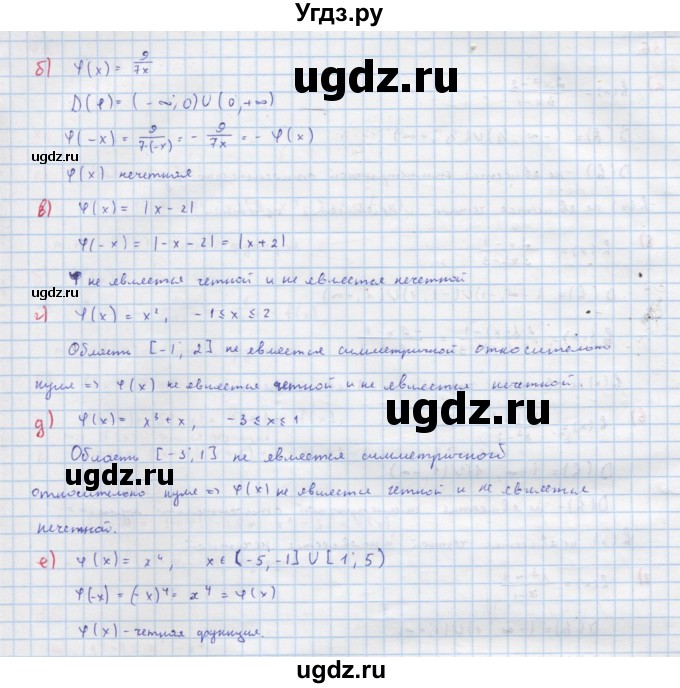 Угдз.ру
б) φ(x) = 9/7x
ugdz.ru
D(φ) = (-∞; 0) ∪ (0; +∞)
φ(-x) = 9/7·(-x) = - 9/7x = - φ(x)
ugdz.ru
ugdz.ru
φ(x) нечетная
в) φ(x) = |x-2|
φ(-x) = |-x-2| = |x+2|
ugdz.ru
φ не является четной и не является нечетной
ugdz.ru
г) φ(x) = x², -1 ≤ x ≤ 2
Область [-1; 2] не является симметричной относительно
нуля => φ(x) не является четной и не является нечетной.
ugdz.ru
д) φ(x) = x³+x, -3 ≤ x ≤ 1
Область [-3; 1] не является симметричной
ugdz.ru
относительно нуля => φ(x) не является четной и не является
нечетной.
ugdz.ru
е) φ(x) = x⁴, x∈(-5; -1] ∪ [1; 5)
φ(-x) = (-x)⁴ = x⁴ = φ(x)
φ(x) - четная функция.
ugdz.ru
ugdz.ru